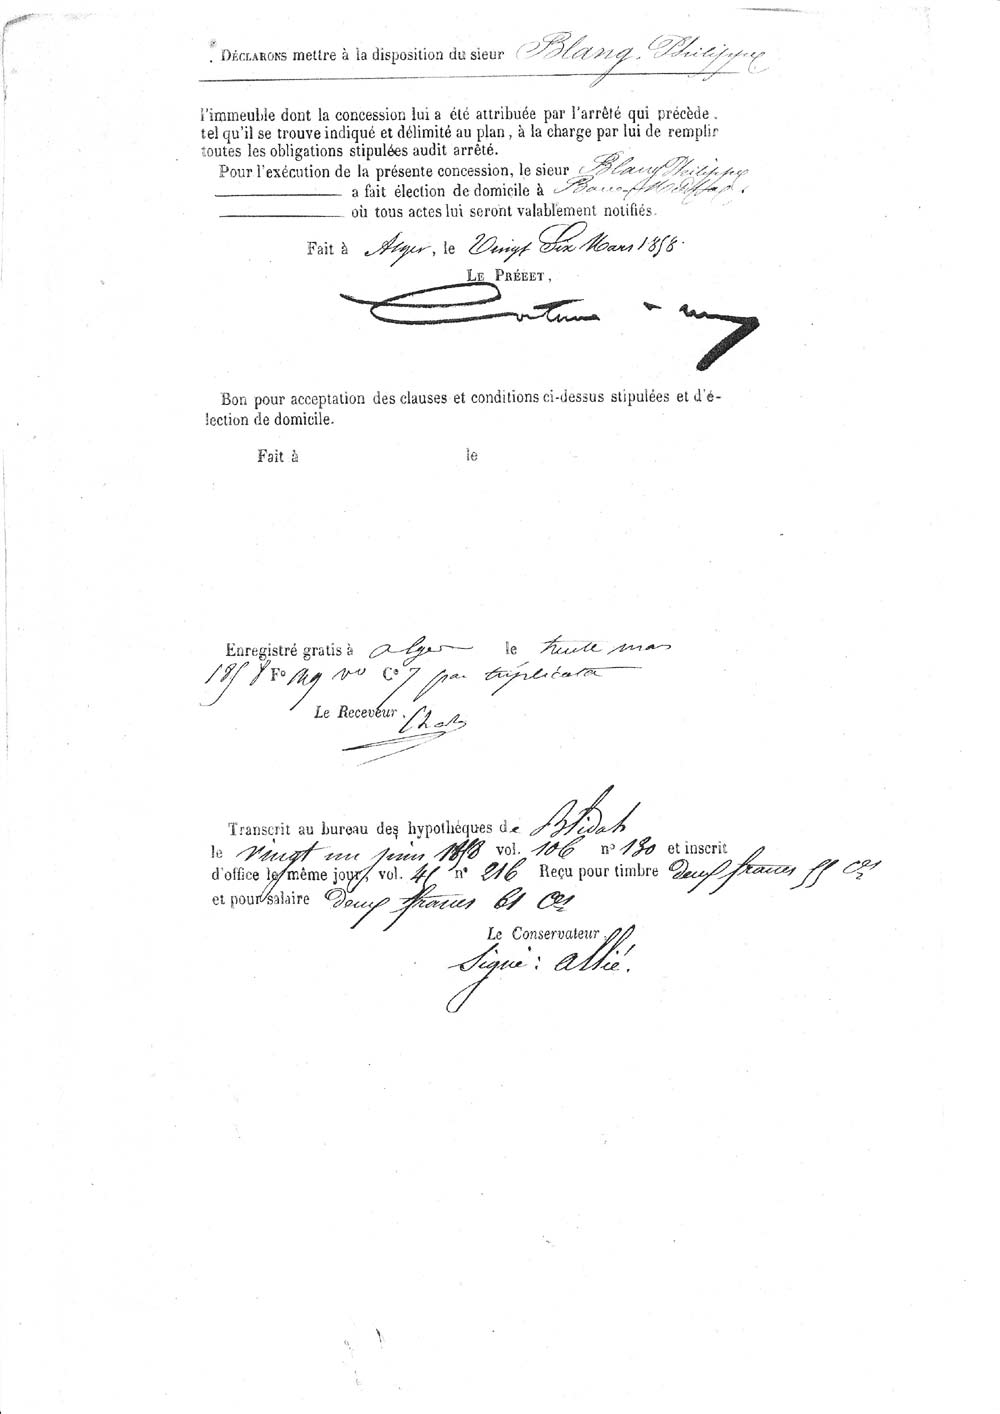 DÉCLARONS mettre à la disposition du sieur Blang, Philippe
l'immeuble dont la concession lui a été attribuée par l'arrêté qui précède,
tel qu'il se trouve indiqué et délimité au plan, à la charge par lui de remplir
toutes les obligations stipulées audit arrêté.
Pour l'exécution de la présente concession, le sieur Blang Philippe
a fait élection de domicile à
où tous actes lui seront valablement notifiés.
Fait à Alger, le Vingt Six Mars 1858.
LE PRÉEET,
Bon pour acceptation des clauses et conditions ci-dessus stipulées et d'é-
lection de domicile.
Fait à le
Enregistré gratis à alger le trente mars
1858 F° 119 vo C° 7 par triplicata
Le Receveur.
Transcrit au bureau des hypothéques de Blidah
le vingt un juin 1858 vol. 106 n° 130 et inscrit
d'office le même jour, vol. 45 n° 216 Reçu pour timbre deux francs 55 Ces
et pour salaire deux francs 61 Ces
Le Conservateur,
Signé : Allié.